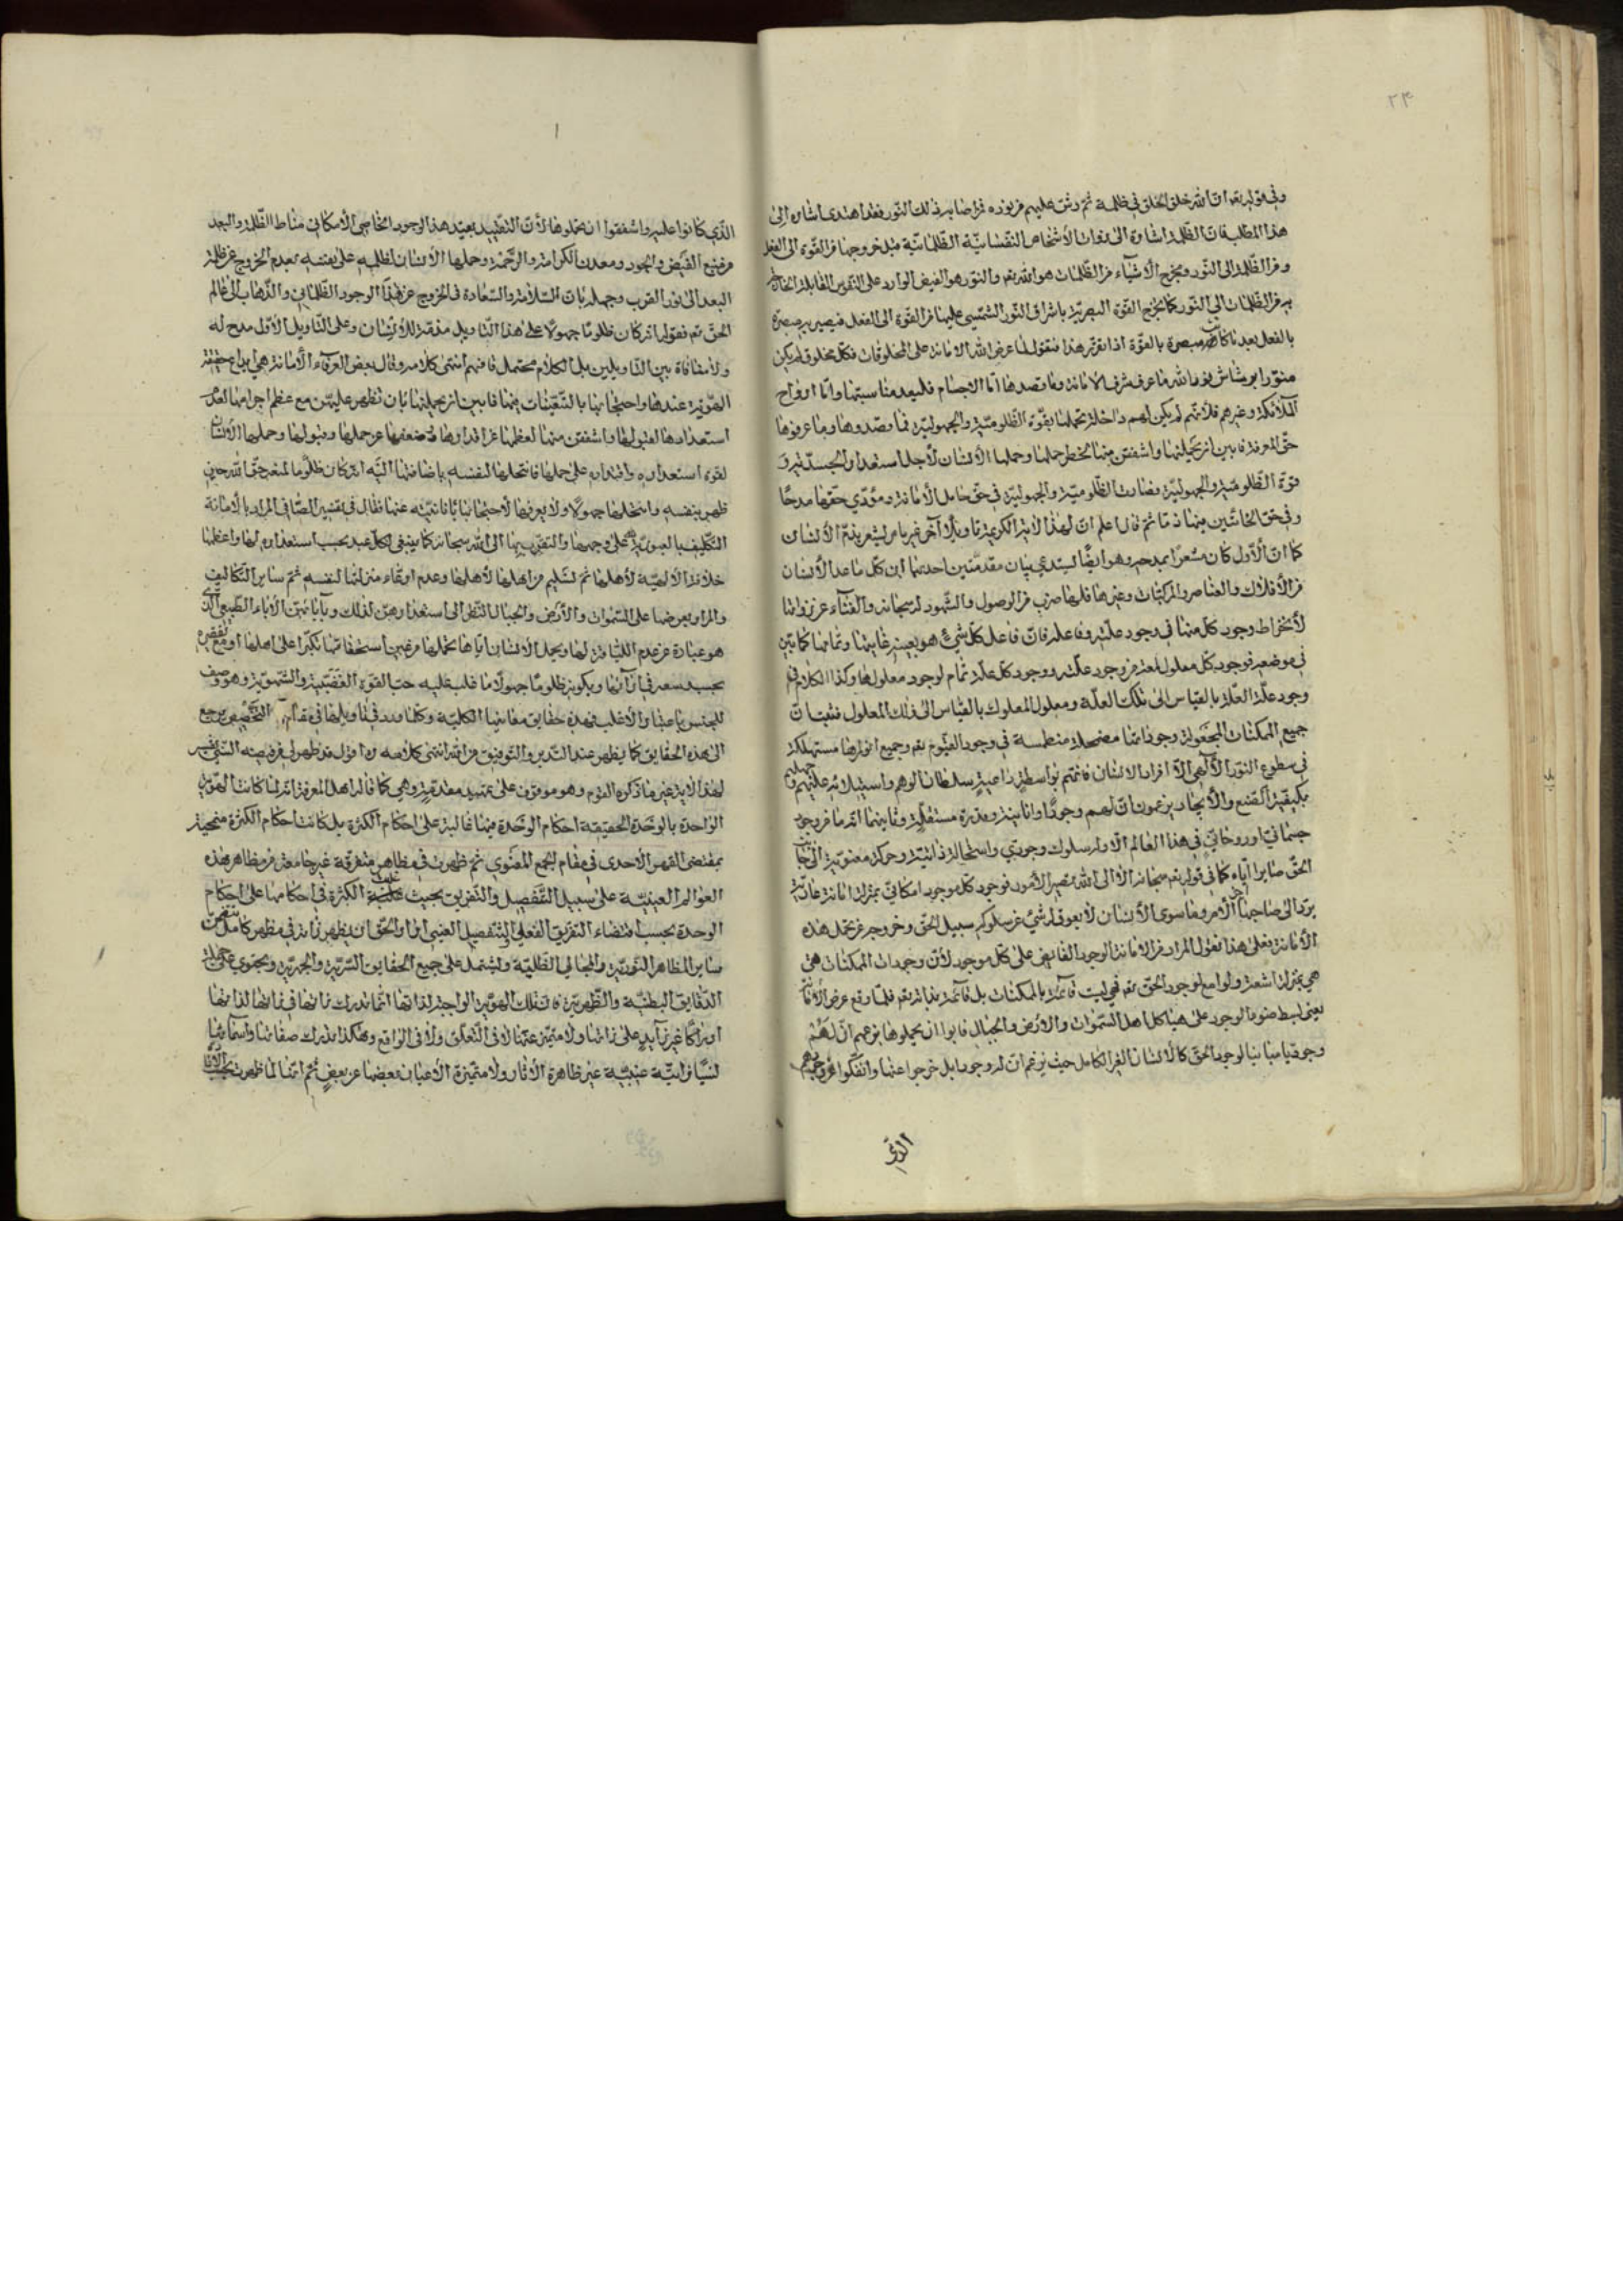 ٢٤
وفي قوله تعه ان الله خلق الخلق في ظلمة ثم رش عليهم من نوره فمن اصابه من ذلك النور فقد اهتدى اشارة الى
هذا المطلب فان الظلمة اشارة الى ذوات الأشخاص النفسانيّة الظلمانيّة قبل خروجها من القوة الى الفعل
ومن الظّلمة الى النّور ومخرج الأشياء من الظّلمات هو الله تعه والنّور هو الفيض الوارد على النّفوس القابلة الخارجة
به من الظّلمات الى النّور كما يخرج القوّة البصريّة باشراق النّور الشّمسي عليها من القوّة الى الفعل فيصير به مبصرة
بالفعل بعد ما كانت مبصرة بالقوّة اذا تقرّر هذا فنقول لما عرض الله الامانة على المخلوقات فكلّ مخلوق لم يكن
منوّرا برشاش نور الله ما عرف شرف الامانة وما قصدها امّا الاجسام فلبعد مناسبتها وامّا ارواح
الملائكة وغيرهم فلأنّهم لم يكن لهم داخلة تحملها بقوّة الظّلوميّة والجهوليّة فما قصدوها وما عرفوها
حقّ المعرفة فابين ان يحملنها واشفقن منها لخطر حملها وحملها الأنسان لأجل استعداد الجسديّة و
قوّة الظّلوميّة والجهوليّة فصارت الظّلوميّة والجهوليّة في حقّ حامل الأمانة ومؤدّي حقّها مدحًا
وفي حقّ الخائنين فيها ذمّا ثم قال اعلم انّ لهذا الآية الكريمة تاويلًا آخر غير ما مرّ يشعر بذمّ الأنسان
كما انّ الأوّل كان مشعرًا بمدحه وهو ايضًا يستدعي بيان مقدّمتين احدتهما انّ كلّ ما عدا الأنسان
من الأفلاك والعناصر والمركبّات وغيرها فلها ضرب من الوصول والشّهود له سبحانه والفناء عن ذواتها
لأنخراط وجود كلّ منها في وجود علّته وفاعله فانّ فاعل كلّ شيء هو بعينه غايتها وتمامها كما بيّن
في موضعه فوجود كلّ معلول لمعة من وجود علّته ووجود كلّ علّة تمام لوجود معلولها وكذا الكلام في
وجود علّة العلّة بالقياس الى تلك العلّة ومعلول المعلول بالقياس الى ذلك المعلول فثبت انّ
جميع الممكنات المجعولة وجوداتها مضمحلة منطمسة في وجود القيّوم تعه وجميع انوارها مستهلكة
في سطوع النّور الألٓهي الّا افراد الانسان فانّهم بواسطة داعية سلطان الوهم واستيلائه عليهم و جهلهم
بكيفيّة الصّنع والأيجاد يزعمون انّ لهم وجودًا وانانية وقدرة مستقلّة وثانيهما انّه ما من وجود
جسمانيّ او روحانيّ في هذا العالم الّا وله سلوك وجودي واستحالة ذاتيّة وحركة معنويّة الى جانب
الحقّ صايرا ايّاه كما في قوله تعه سبحانه الا الى الله تصير الأمور فوجود كلّ موجود امكانيّ بمنزلة امانة عاريّة
يردّ الى صاحبها آخر الأمر وما سوى الأنسان لا يعوقه شيء عن سلوكه سبيل الحقّ وخروجه عن تحمل هذه
الأمانة فعلى هذا نقول المراد من الامانة الوجود الفايض على كلّ موجود لأنّ وجودات الممكنات هي
هي بمنزلة اشعة ولوامع لوجود الحقّ تعه فهي ليست قائمة بالممكنات بل قائمة بذاته تعه فلمّا وقع عرض الأمانة
يعني بسط ضوء الوجود على هياكل اهل السّموات والارض والجبال فابوا ان يحملوها بزعمهم انّ لهم
وجودًا مباينا لوجود الحقّ كالأنسان الغير الكامل حيث يزعم ان له وجودا بل خرجوا عنها وانفكّوا عن وجودهم
الذي
الذّي كانوا عليه واشفقوا ان يحملوها لأنّ التقييد بقيد هذا الوجود الخاص الأمكاني مناط الظّلمة والبعد
من منبع الفيض والجود ومعدن الكرامة والرّحمة وحملها الأنسان لظلمه على نفسه بعدم الخروج عن ظلمة
البعد الى نور القرب وجهله بان السّلامة والسّعادة في الخروج عن هذا الوجود الظّلماني والذّهاب الى عالم
الحقّ تعه فقوله انّه كان ظلومًا جهولًا على هذا التاويل مذمّة للأنسان وعلى التّاويل الأوّل مدح له
ولا منافاة بين التاويلين بل الكلام محتمل فافهم انتهى كلامه وقال بعض العرفاء الأمانة هي ايداع حقيقة
الهويّة عندها واحتجابها بالتّعيّنات بها فابين ان يحملنها بان تظهر عليهنّ مع عظم اجرامها لعدم
استعدادها لقبولها واشفقن منها لعظمها عن اقدارها وضعفها عن حملها وقبولها وحملها الأنسان
لقوّة استعداده واقتداره على حملها فانتحلها لنفسه باضافتها اليه انّه كان ظلومًا لمنعه حقّ الله حين
ظهر بنفسه وانتحلها جهولًا ولا يعرفها لأحتجابه بانانيّته عنها وقال في تفسير الصّافي المراد بالأمانة
التّكليف بالعبوديّة على وجهها والتقرّب بها الى الله سبحانه كما ينبغي لكلّ عبد بحسب استعداده لها واعظمها
خلافة الألهيّة لأهلها ثم تسليم من اهلها لأهلها وعدم ادّعاء منزلتها لنفسه ثمّ ساير التّكاليف
والمراد بعرضها على السّموات والأرض والجبال النّظر الى استعدادهنّ لذلك وبابائهنّ الأباء الطّبيعي الّذي
هو عبارة عن عدم اللياقة لها وبحمل الأنسان ايّاها تحملها من غير استحقاقها تكبّرًا على اهلها او مع تقصيره
بحسب وسعه في ادائها وبكونه ظلومًا جهولًا ما غلب عليه حبّ القوّة الغضبيّة والشّهويّة وهو وصف
للجنس باعتبار الأغلب فهذه حقايق معانيها الكليّة وكلّما ورد في تاويلها في مقام التّخصيص يرجع
الى هذه الحقايق كما يظهر عند التّدبّر والتّوفيق من الله انتهى كلامه
لهذا الآية غير ما ذكره القوم وهو موقوف على تمهيد مقدّمة وهي كما قال اهل المعرفة انّه لما كانت الهويّة
الواحدة بالوحدة الحقيقة احكام الوحدة فيها غالبة على احكام الكثرة بل كانت احكام الكثرة منمحية
بمقتضى القهر الأحدى في مقام الجمع المعنوي ثم ظهرت في مظاهر متفرّقة غير جامعة من مظاهر هذه
العوالم العينيّة على سبيل التّفصيل والتّفريق بحيث غلبت الكثرة في احكامها على احكام
الوحدة بحسب اقتضاء التفرّق الفعلي والتّفصيل العيني اراد الحقّ ان يظهر ذاته في مظهر كامل يتضمّن
ساير المظاهر النّوريّة والمجالي الظليّة ويشتمل على جميع الحقايق السّريّة والجهريّة ويحتوي على جملة
الدّقايق البطنيّة والظّهريّة فانّ تلك الهويّة الواجبة لذاتها انّما تدرك ذاتها في ذاتها لذاتها
ادراكًا غير زايد على ذاتها ولا متميّز عنها لا في التّعقّل ولا في الواقع وهكذا تدرك صفاتها واسمائها
نسبًا ذاتيّة غيبيّة غير ظاهرة الأثار ولا متميّزة الأعيان بعضها عن بعض ثمّ انّها لما ظهرت